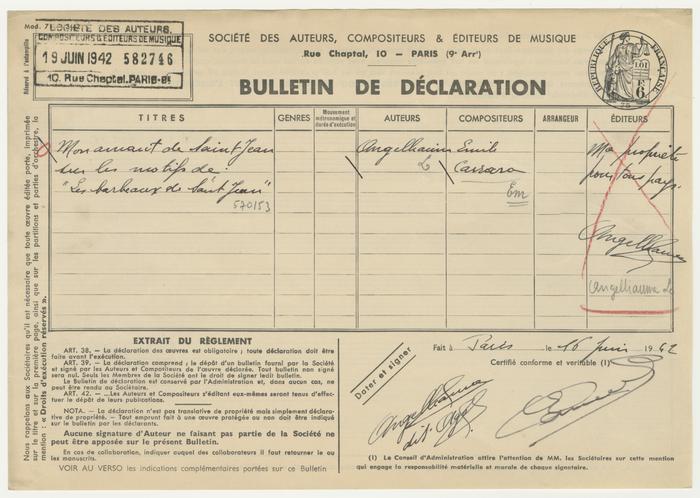 Mod. 7
SOCIÉTÉ DES AUTEURS,
COMPOSITEURS & ÉDITEURS DE MUSIQUE
19 JUIN 1942 582746
10. Rue Chaptal. PARIS-9e
Réservé à l'estampille
SOCIÉTÉ DES AUTEURS, COMPOSITEURS & ÉDITEURS DE MUSIQUE
Rue Chaptal, 10 — PARIS (9e Arrt)
BULLETIN DE DÉCLARATION
RÉPUBLIQUE FRANÇAISE
LOI
6F
TITRES
GENRES
Mouvement métronomique et durée d'exécution
AUTEURS
COMPOSITEURS
ARRANGEUR
ÉDITEURS
Mon amant de Saint Jean
sur les motifs de :
"Les barbeaux de Saint Jean"
570153
Angelhauma
L
Emile
Carrara
Em
Ma propriété
pour tous pays.
Angelhauma
Angelhauma L
Nous rappelons aux Sociétaires qu'il est nécessaire que toute œuvre éditée porte, imprimée
sur le titre et sur la première page, ainsi que sur les partitions et parties d'orchestre, la
mention : « Droits d'exécution réservés ».
EXTRAIT DU RÈGLEMENT
ART. 38. — La déclaration des œuvres est obligatoire ; toute déclaration doit être
faite avant l'exécution.
ART. 39. — La déclaration comprend : le dépôt d'un bulletin fourni par la Société
et signé par les Auteurs et Compositeurs de l'œuvre déclarée. Tout bulletin non signé
sera nul. Seuls les Membres de la Société ont le droit de signer ledit bulletin.
Le Bulletin de déclaration est conservé par l'Administration et, dans aucun cas, ne
peut être rendu au Sociétaire.
ART. 42. — ...Les Auteurs et Compositeurs s'éditant eux-mêmes seront tenus d'effec-
tuer le dépôt de leurs publications.
NOTA. — La déclaration n'est pas translative de propriété mais simplement déclara-
tive de propriété. — Tout emprunt fait à une œuvre protégée ou non doit être indiqué
sur le bulletin par les déclarants.
Aucune signature d'Auteur ne faisant pas partie de la Société ne
peut être apposée sur le présent Bulletin.
En cas de collaboration, indiquer auquel des collaborateurs il faut retourner le ou
les manuscrits.
VOIR AU VERSO les indications complémentaires portées sur ce Bulletin
Fait à Paris le 16 juin 1942
Certifié conforme et véritable (1)
Dater et signer
Angelhauma
(1) Le Conseil d'Administration attire l'attention de MM. les Sociétaires sur cette mention
qui engage la responsabilité matérielle et morale de chaque signataire.